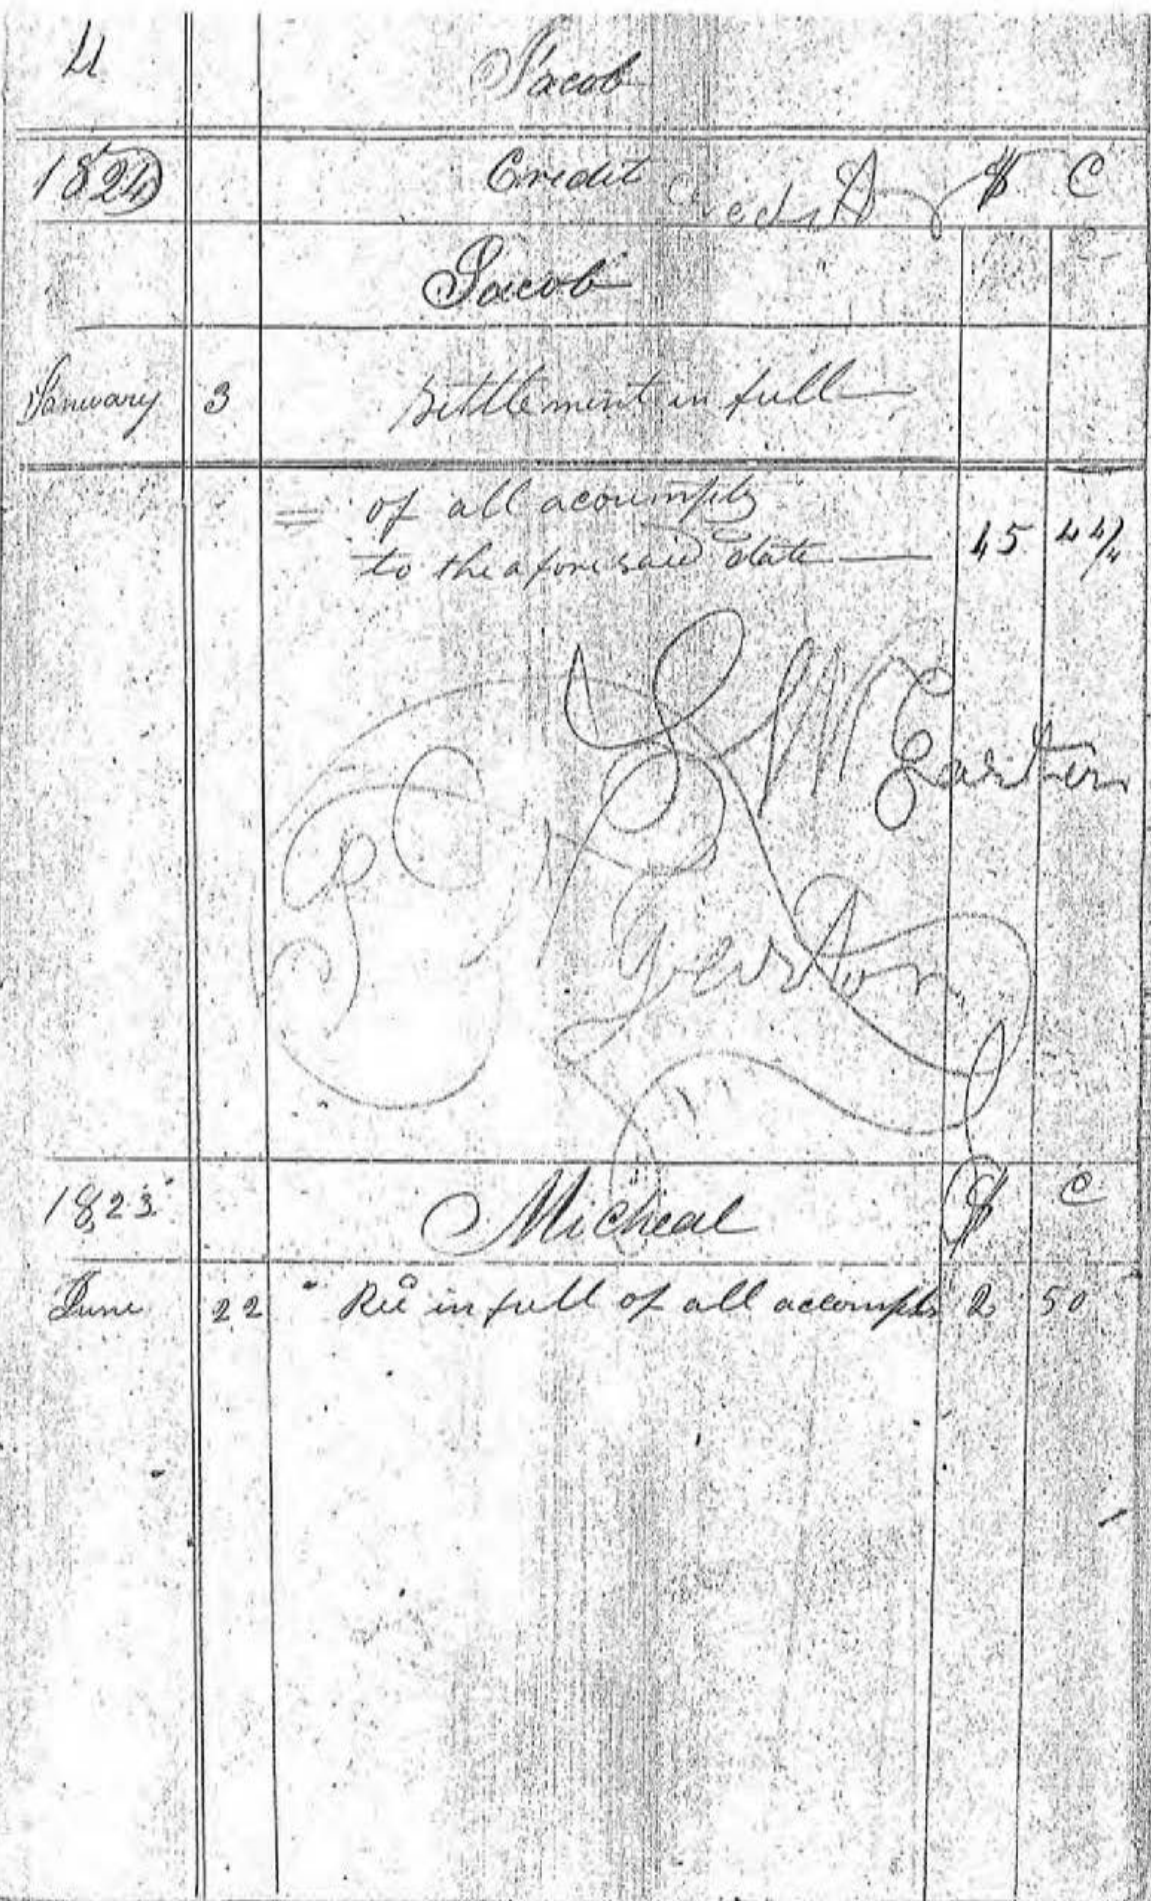 4 Jacob
1824 Credit Credit $ C
Jacob
January 3 Settlement in full
= of all acoumpts
to the aforesaid date — 45 44/4
S W Easter
1823 Micheal $ C
June 22 " Recd in full of all accompts 2 50